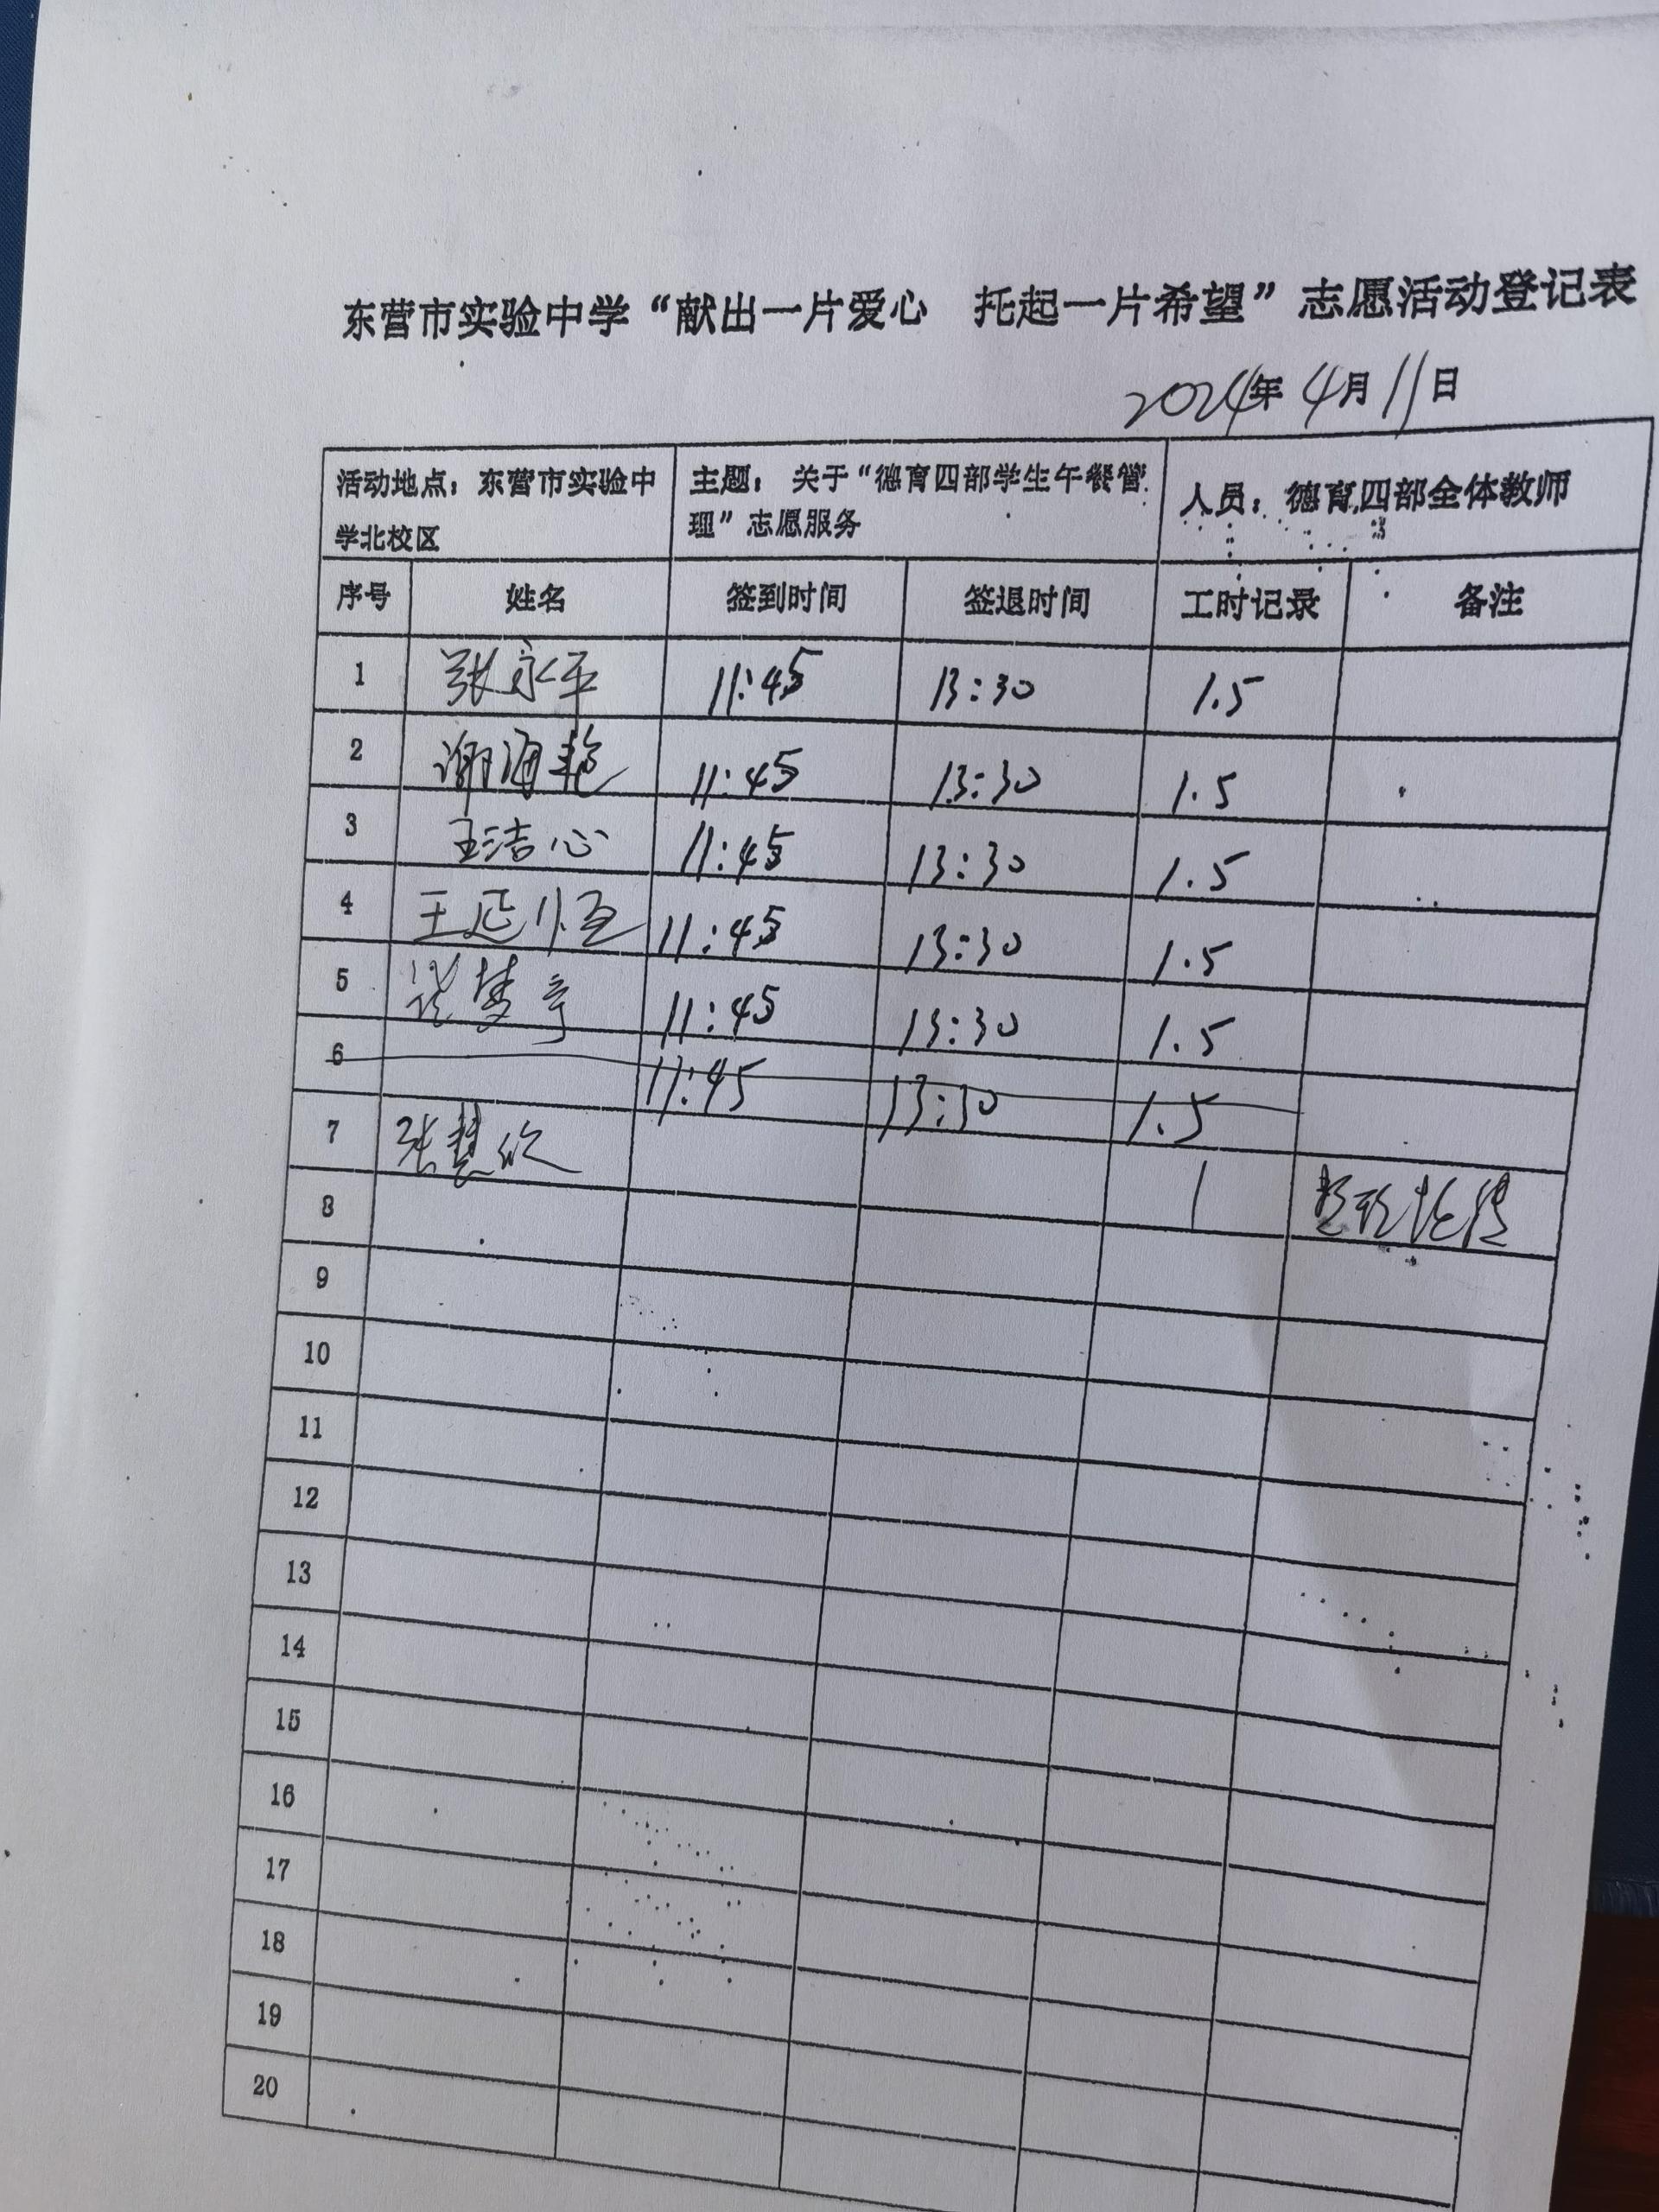 东营市实验中学“献出一片爱心 托起一片希望”志愿活动登记表
2024年4月11日
活动地点：东营市实验中学北校区 主题：关于“德育四部学生午餐管理”志愿服务 人员：德育四部全体教师
序号 姓名 签到时间 签退时间 工时记录 备注
1 张永平 11:45 13:30 1.5
2 谢海艳 11:45 13:30 1.5
3 王洁心 11:45 13:30 1.5
4 王延恒 11:45 13:30 1.5
5 11:45 13:30 1.5
6 11:45 13:30 1.5
7 张慧欣 1
8
9
10
11
12
13
14
15
16
17
18
19
20